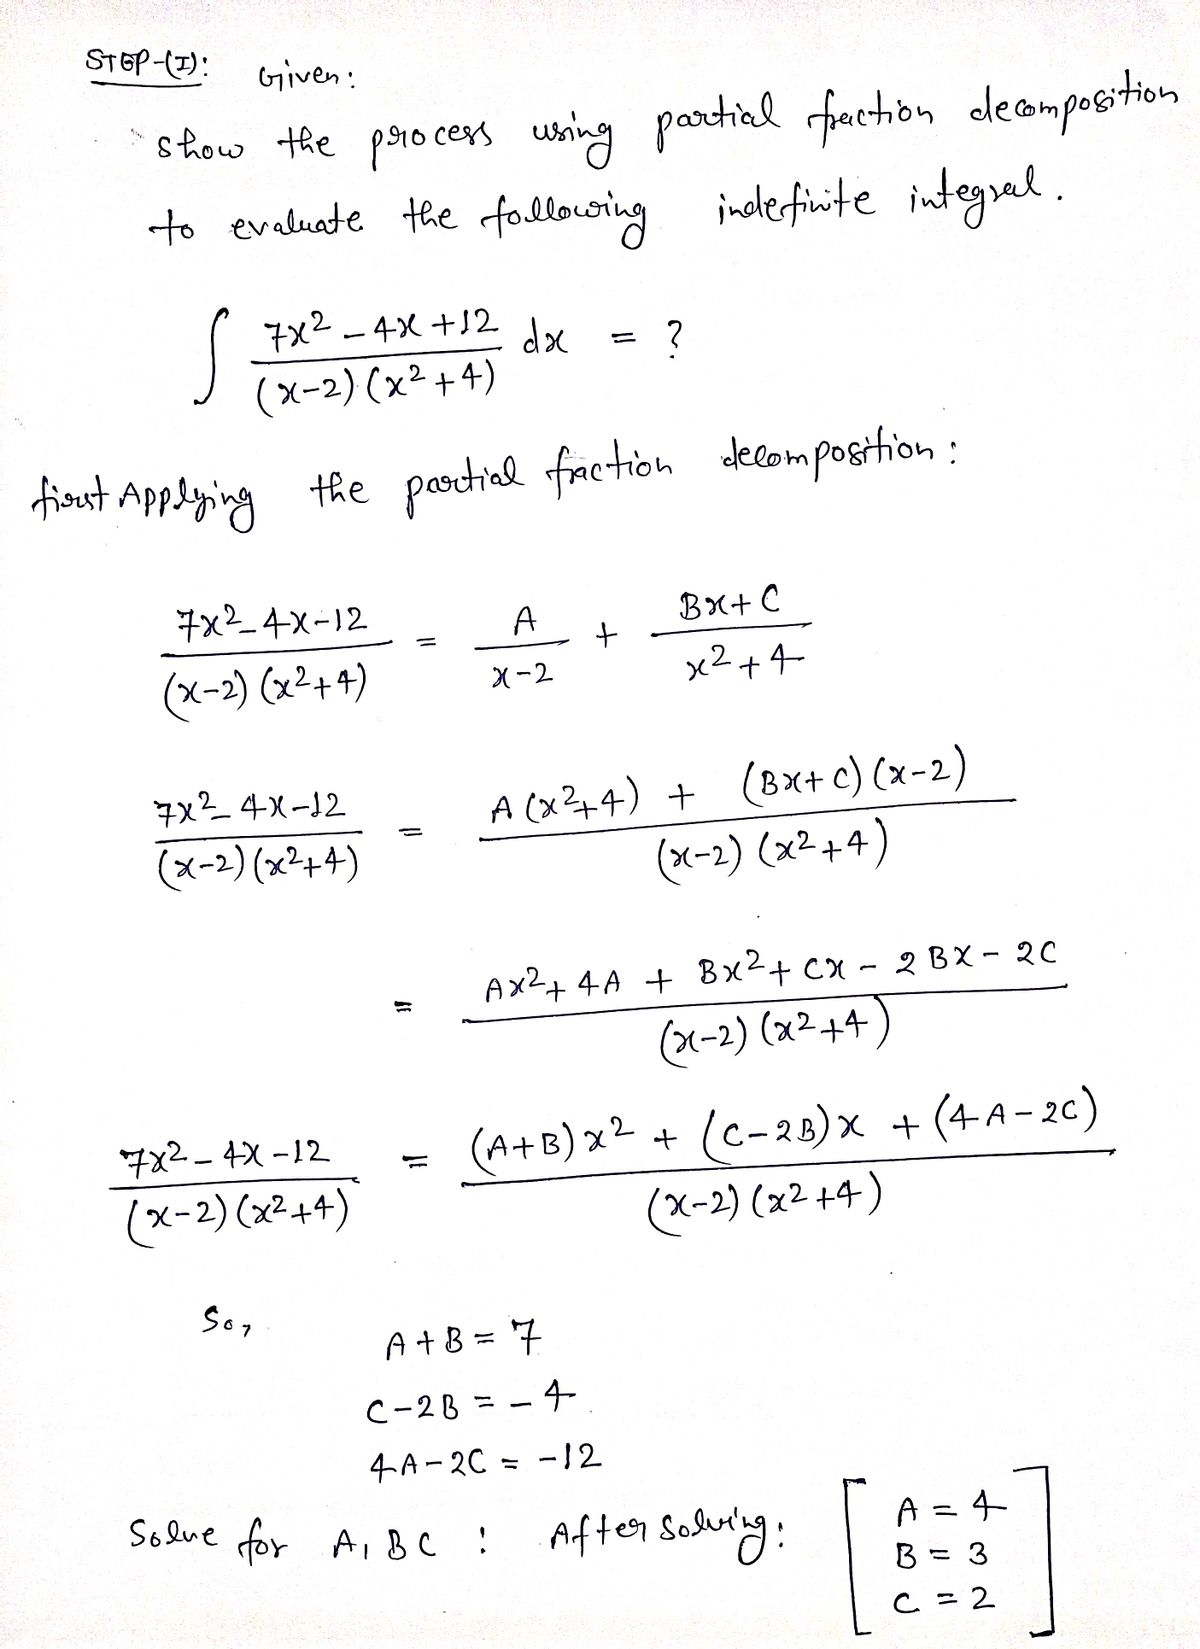 STEP-(I): Given:
show the process using partial fraction decomposition
to evaluate the following indefinite integral.
∫ (7x² - 4x + 12) / ((x-2)(x²+4)) dx = ?
first Applying the partial fraction decomposition:
(7x² - 4x - 12) / ((x-2)(x²+4)) = A / (x-2) + (Bx+C) / (x²+4)
(7x² - 4x - 12) / ((x-2)(x²+4)) = (A(x²+4) + (Bx+C)(x-2)) / ((x-2)(x²+4))
= (Ax² + 4A + Bx² + Cx - 2Bx - 2C) / ((x-2)(x²+4))
(7x² - 4x - 12) / ((x-2)(x²+4)) = ((A+B)x² + (C-2B)x + (4A-2C)) / ((x-2)(x²+4))
So,
A+B = 7
C-2B = -4
4A-2C = -12
Solve for A, B C : After solving:
A = 4
B = 3
C = 2